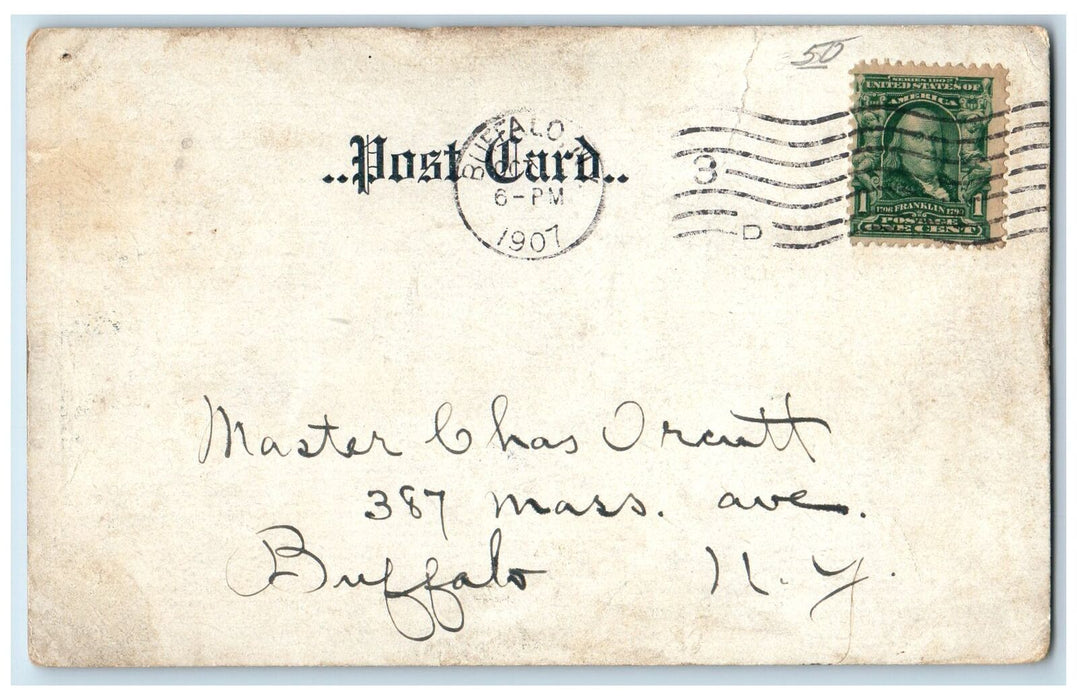 50
SERIES 1902
UNITED STATES OF
AMERICA
..Post Card..
BUFFALO, N.Y.
6-PM
1907
3
D
1 FRANKLIN 1
POSTAGE
ONE CENT
Master Chas Orcutt
387 Mass. ave.
Buffalo N.Y.